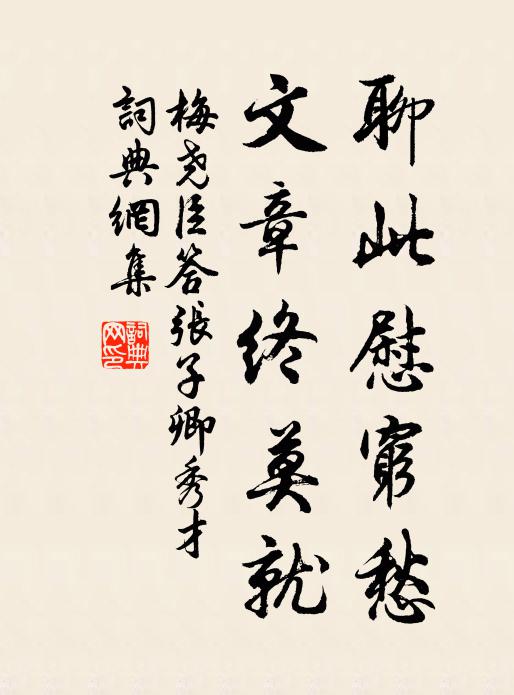 聊此慰窮愁
文章終莫就
梅尧臣答張子卿秀才
詞典網集
詞典网印